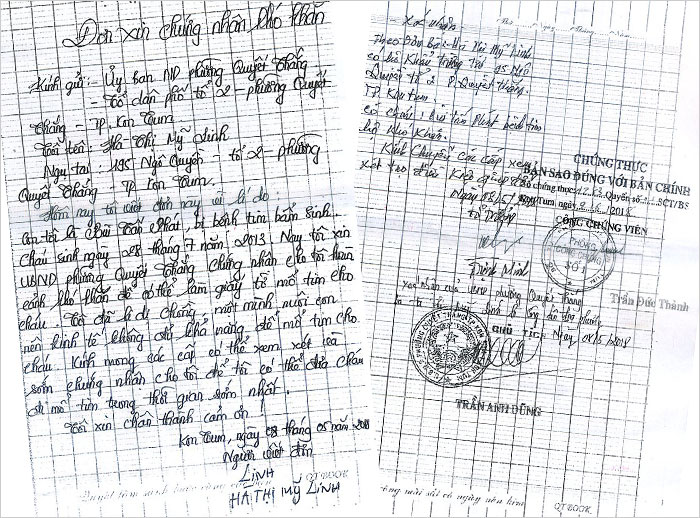 Đơn xin chứng nhận khó khăn
Kính gửi: - Ủy ban ND phường Quyết Thắng
- Tổ dân phố tổ 2 - phường Quyết
Thắng - TP. Kon Tum.
Tôi tên: Hà Thị Mỹ Linh
Ngụ tại: 195 Ngô Quyền - tổ 2 - phường
Quyết Thắng - TP Kon Tum.
Hôm nay tôi viết đơn này với lí do:
con tôi là Chu Tấn Phát, bị bệnh tim bẩm sinh.
Cháu sinh ngày 28 tháng 7 năm 2013. Nay tôi xin
UBND phường Quyết Thắng chứng nhận cho tôi hoàn
cảnh khó khăn để có thể làm giấy tờ mổ tim cho
cháu. Tôi đã li dị chồng, một mình nuôi con
nên kinh tế không đủ khả năng để mổ tim cho
cháu. Kính mong các cấp có thể xem xét và
sớm chứng nhận cho tôi để tôi có thể đưa cháu
đi mổ tim trong thời gian sớm nhất.
Tôi xin chân thành cám ơn!
Kon Tum, ngày 08 tháng 05 năm 2018
Người viết đơn
Linh
HÀ THỊ MỸ LINH
QT BOOK
Xác nhận
Theo đơn bà: Hà Thị Mỹ Linh
có hộ khẩu thường trú
tổ 2 P. Quyết Thắng.
TP. Kon Tum
có cháu: Chu Tấn Phát bệnh tim
hộ khó khăn.
Kính chuyển các cấp xem
xét tạo điều kiện giúp đỡ
CHỨNG THỰC
BẢN SAO ĐÚNG VỚI BẢN CHÍNH
Số chứng thực Quyển số SCT/BS
Kon Tum, ngày
CÔNG CHỨNG VIÊN
Ngày 08/5
Tổ Trưởng
PHÒNG
CÔNG CHỨNG
SỐ 1
Đinh Minh
Trần Đức Thành
Xác nhận của UBND phường Quyết Thắng
CHỦ TỊCH Ngày 08/5/2018
TRẦN ANH DŨNG
QT BOOK